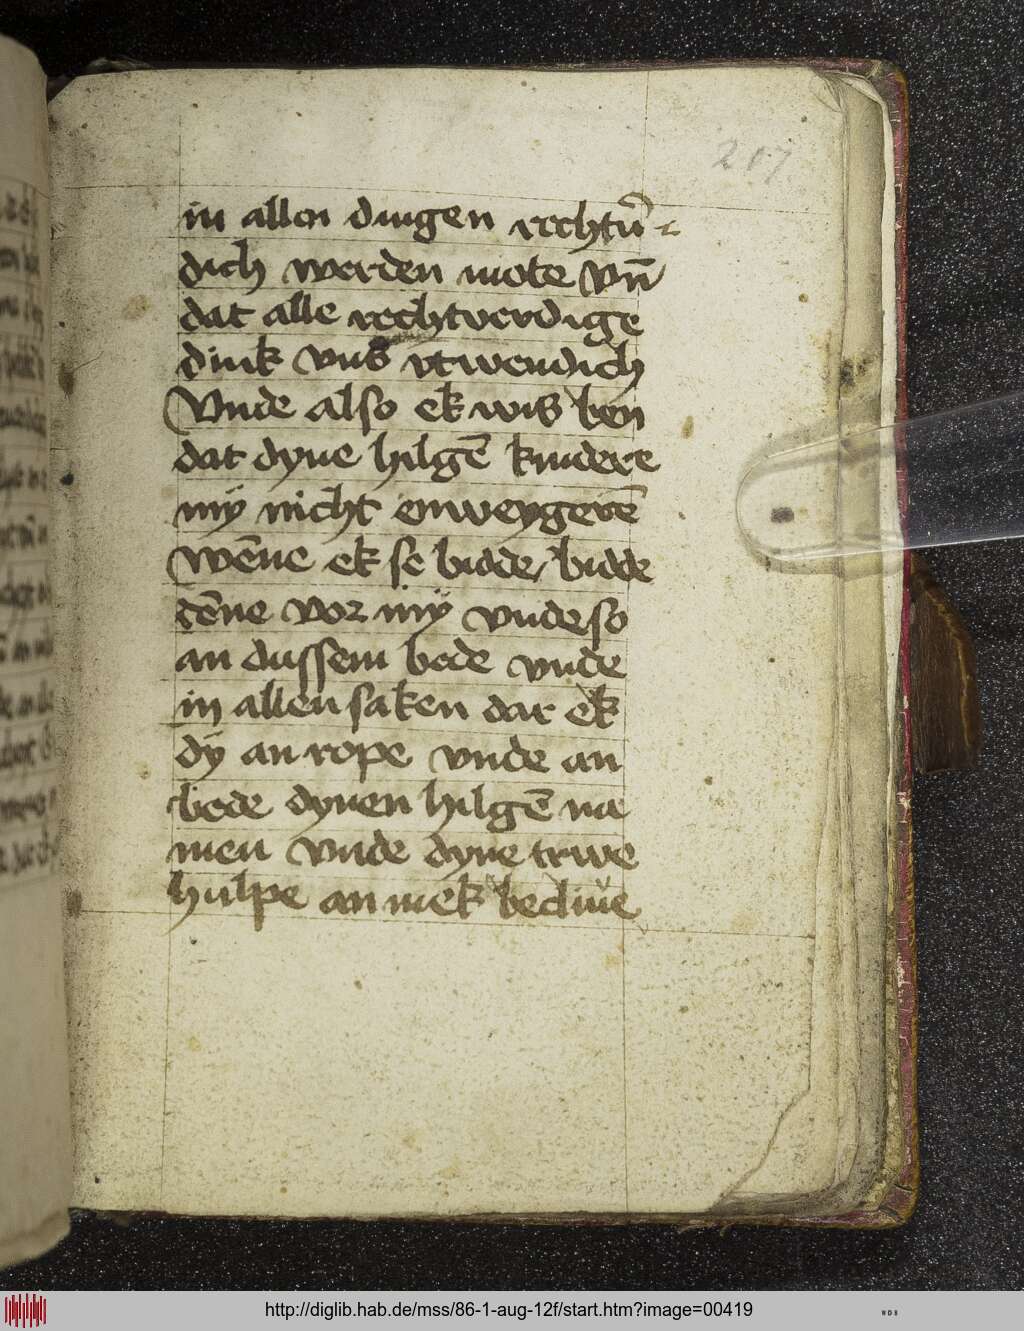 207
in allen dingen rechtu̅-
dich werden mote vn̅
dat alle rechtverdige
dink vns vtwendich
Vnde also ek wis ben
dat dyne hilge̅ kindere
my nicht enweygere̅
We̅ne ek se bidde / bidde
de̅ne vor my vnde so
an dussem bede vnde
in allen saken dar ek
dy an rope vnde an
bede dynen hilge̅ na
men vnde dyne trwe
hulpe an mek
http://diglib.hab.de/mss/86-1-aug-12f/start.htm?image=00419